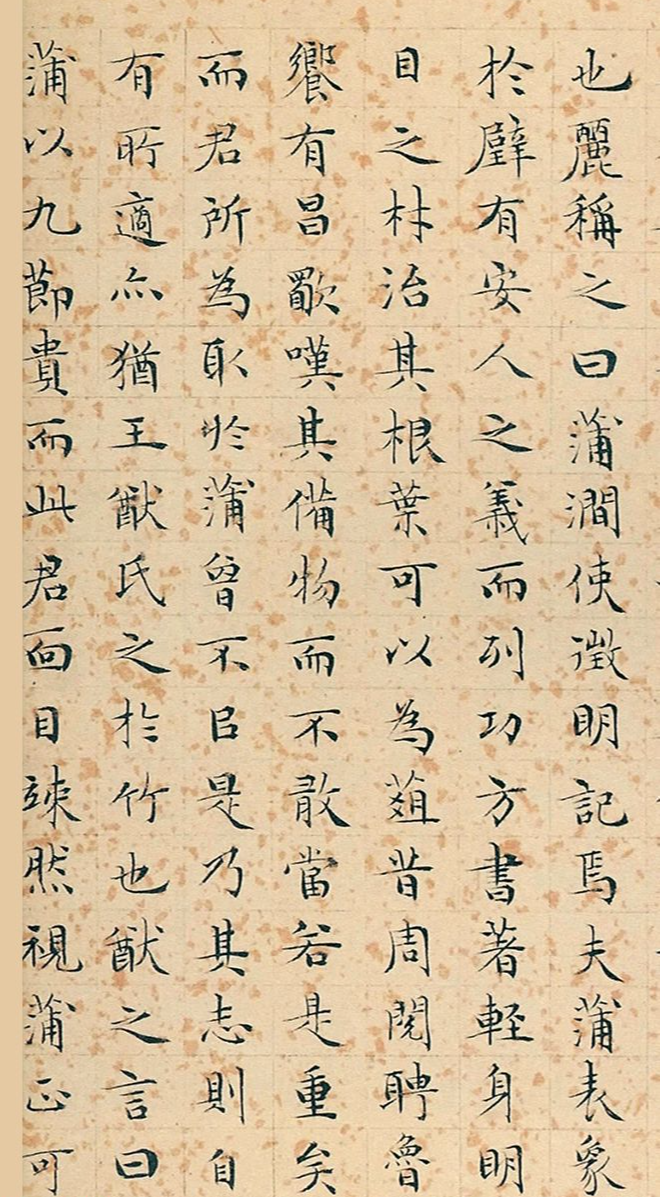 也麗稱之曰蒲澗使徵明記焉夫蒲表象
於璧有安人之義而列功方書著輕身明
目之材治其根葉可以為菹昔周閱聘魯
饗有昌歜嘆其備物而不敢當若是重矣
而君所為取於蒲曾不㠯是乃其志則自
有所適亦猶王猷氏之於竹也猷之言曰
蒲以九節貴而此君面目竦然視蒲正可